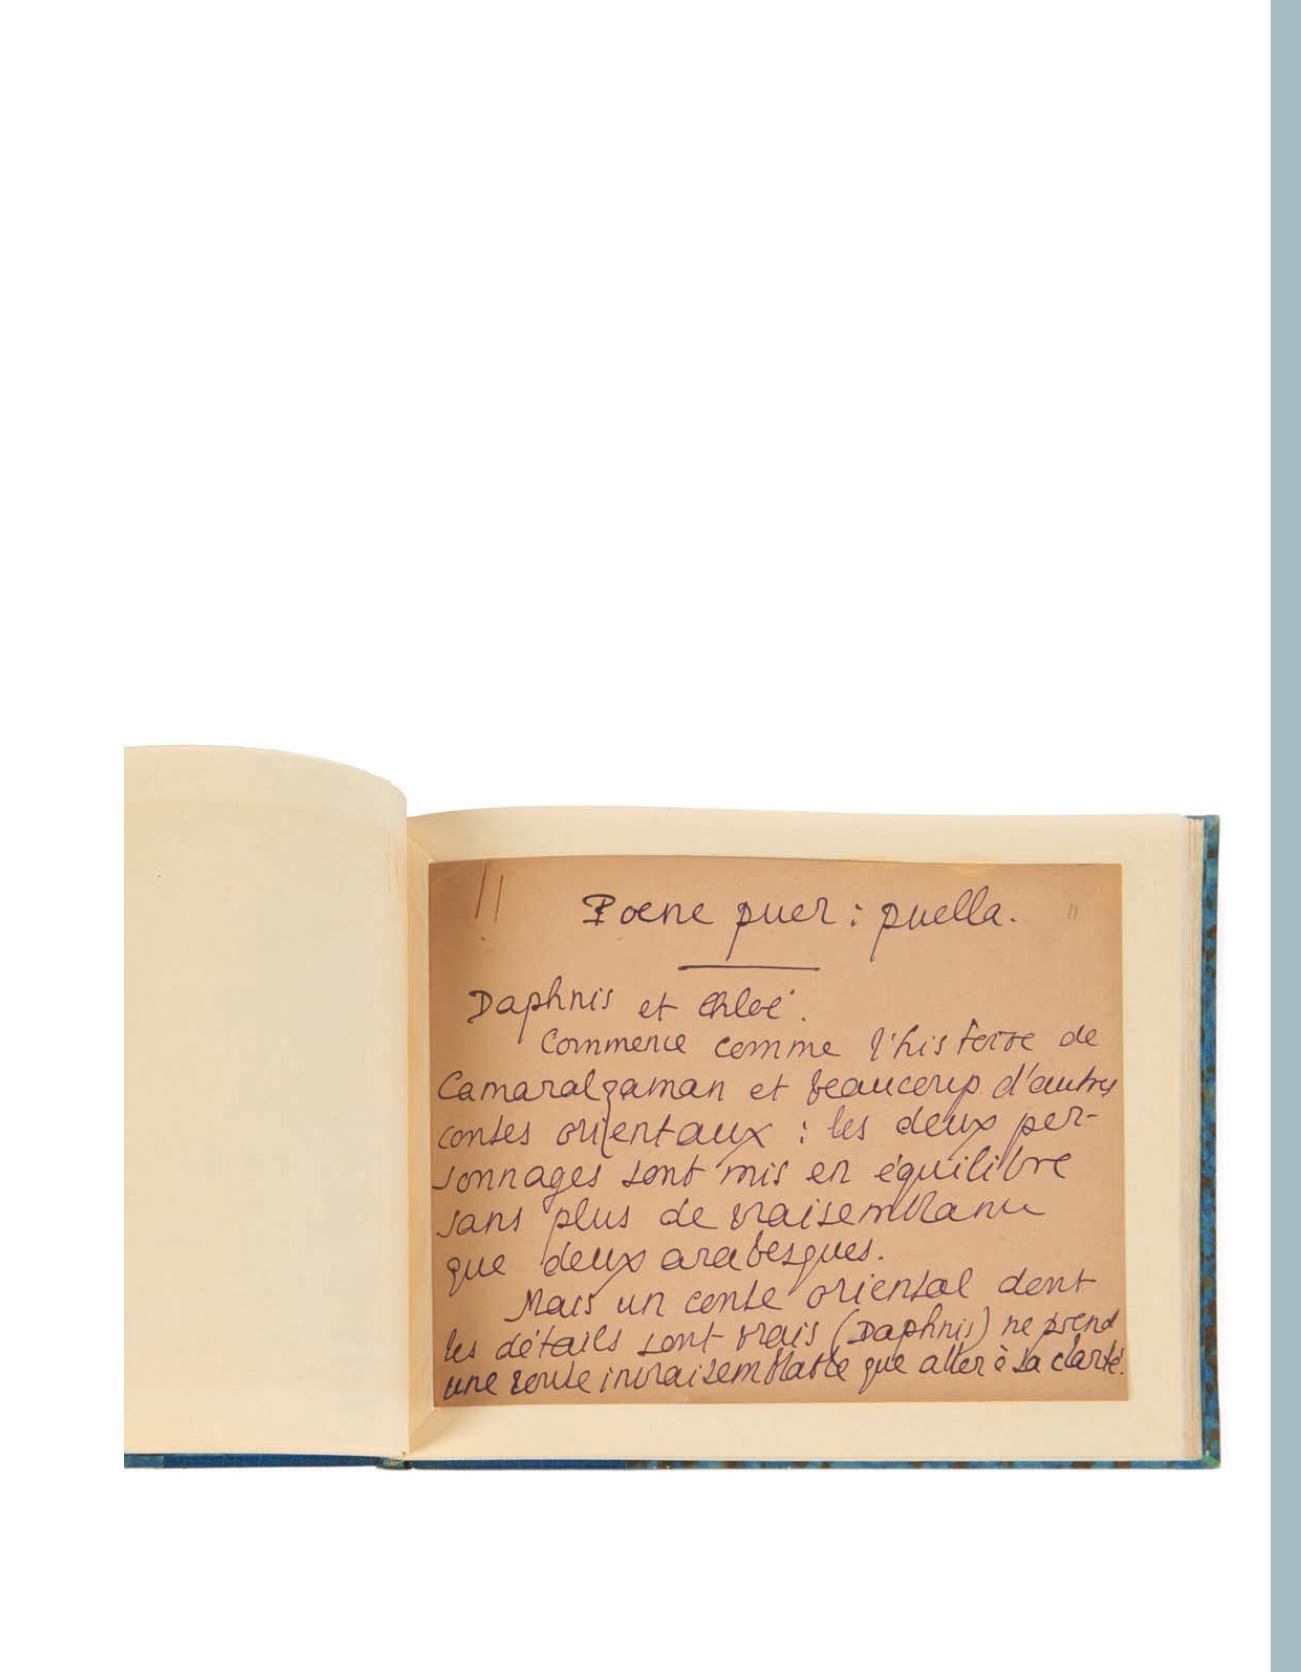 11
Poene puer : puella.
Daphnis et Chloé.
Commence comme l'histoire de
Camaralzaman et beaucoup d'autres
contes orientaux : les deux per-
sonnages sont mis en équilibre
sans plus de vraisemblance
que deux arabesques.
Mais un conte oriental dont
les détails sont vrais (Daphnis) ne prend
une invraisemblable que aller à sa clarté.